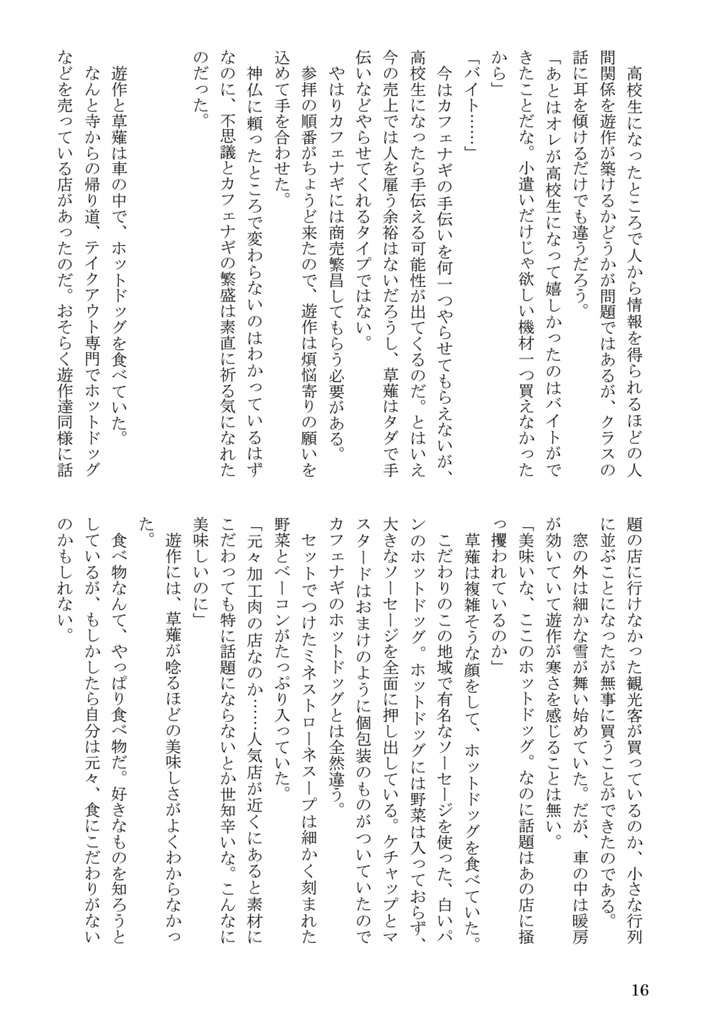 高校生になったところで人から情報を得られるほどの人
間関係を遊作が築けるかどうかが問題ではあるが、クラスの
話に耳を傾けるだけでも違うだろう。
「あとはオレが高校生になって嬉しかったのはバイトがで
きたことだな。小遣いだけじゃ欲しい機材一つ買えなかった
から」
「バイト……」
　今はカフェナギの手伝いを何一つやらせてもらえないが、
高校生になったら手伝える可能性が出てくるのだ。とはいえ
今の売上では人を雇う余裕はないだろうし、草薙はタダで手
伝いなどやらせてくれるタイプではない。
　やはりカフェナギには商売繁昌してもらう必要がある。
　参拝の順番がちょうど来たので、遊作は煩悩寄りの願いを
込めて手を合わせた。
　神仏に頼ったところで変わらないのはわかっているはず
なのに、不思議とカフェナギの繁盛は素直に祈る気になれた
のだった。
　遊作と草薙は車の中で、ホットドッグを食べていた。
　なんと寺からの帰り道、テイクアウト専門でホットドッグ
などを売っている店があったのだ。おそらく遊作達同様に話
題の店に行けなかった観光客が買っているのか、小さな行列
に並ぶことになったが無事に買うことができたのである。
　窓の外は細かな雪が舞い始めていた。だが、車の中は暖房
が効いていて遊作が寒さを感じることは無い。
「美味いな、ここのホットドッグ。なのに話題はあの店に掻
っ攫われているのか」
　草薙は複雑そうな顔をして、ホットドッグを食べていた。
　こだわりのこの地域で有名なソーセージを使った、白いパ
ンのホットドッグ。ホットドッグには野菜は入っておらず、
大きなソーセージを全面に押し出している。ケチャップとマ
スタードはおまけのように個包装のものがついていたので
カフェナギのホットドッグとは全然違う。
　セットでつけたミネストローネスープは細かく刻まれた
野菜とベーコンがたっぷり入っていた。
「元々加工肉の店なのか……人気店が近くにあると素材に
こだわっても特に話題にならないとか世知辛いな。こんなに
美味しいのに」
　遊作には、草薙が唸るほどの美味しさがよくわからなかっ
た。
　食べ物なんて、やっぱり食べ物だ。好きなものを知ろうと
しているが、もしかしたら自分は元々、食にこだわりがない
のかもしれない。
16